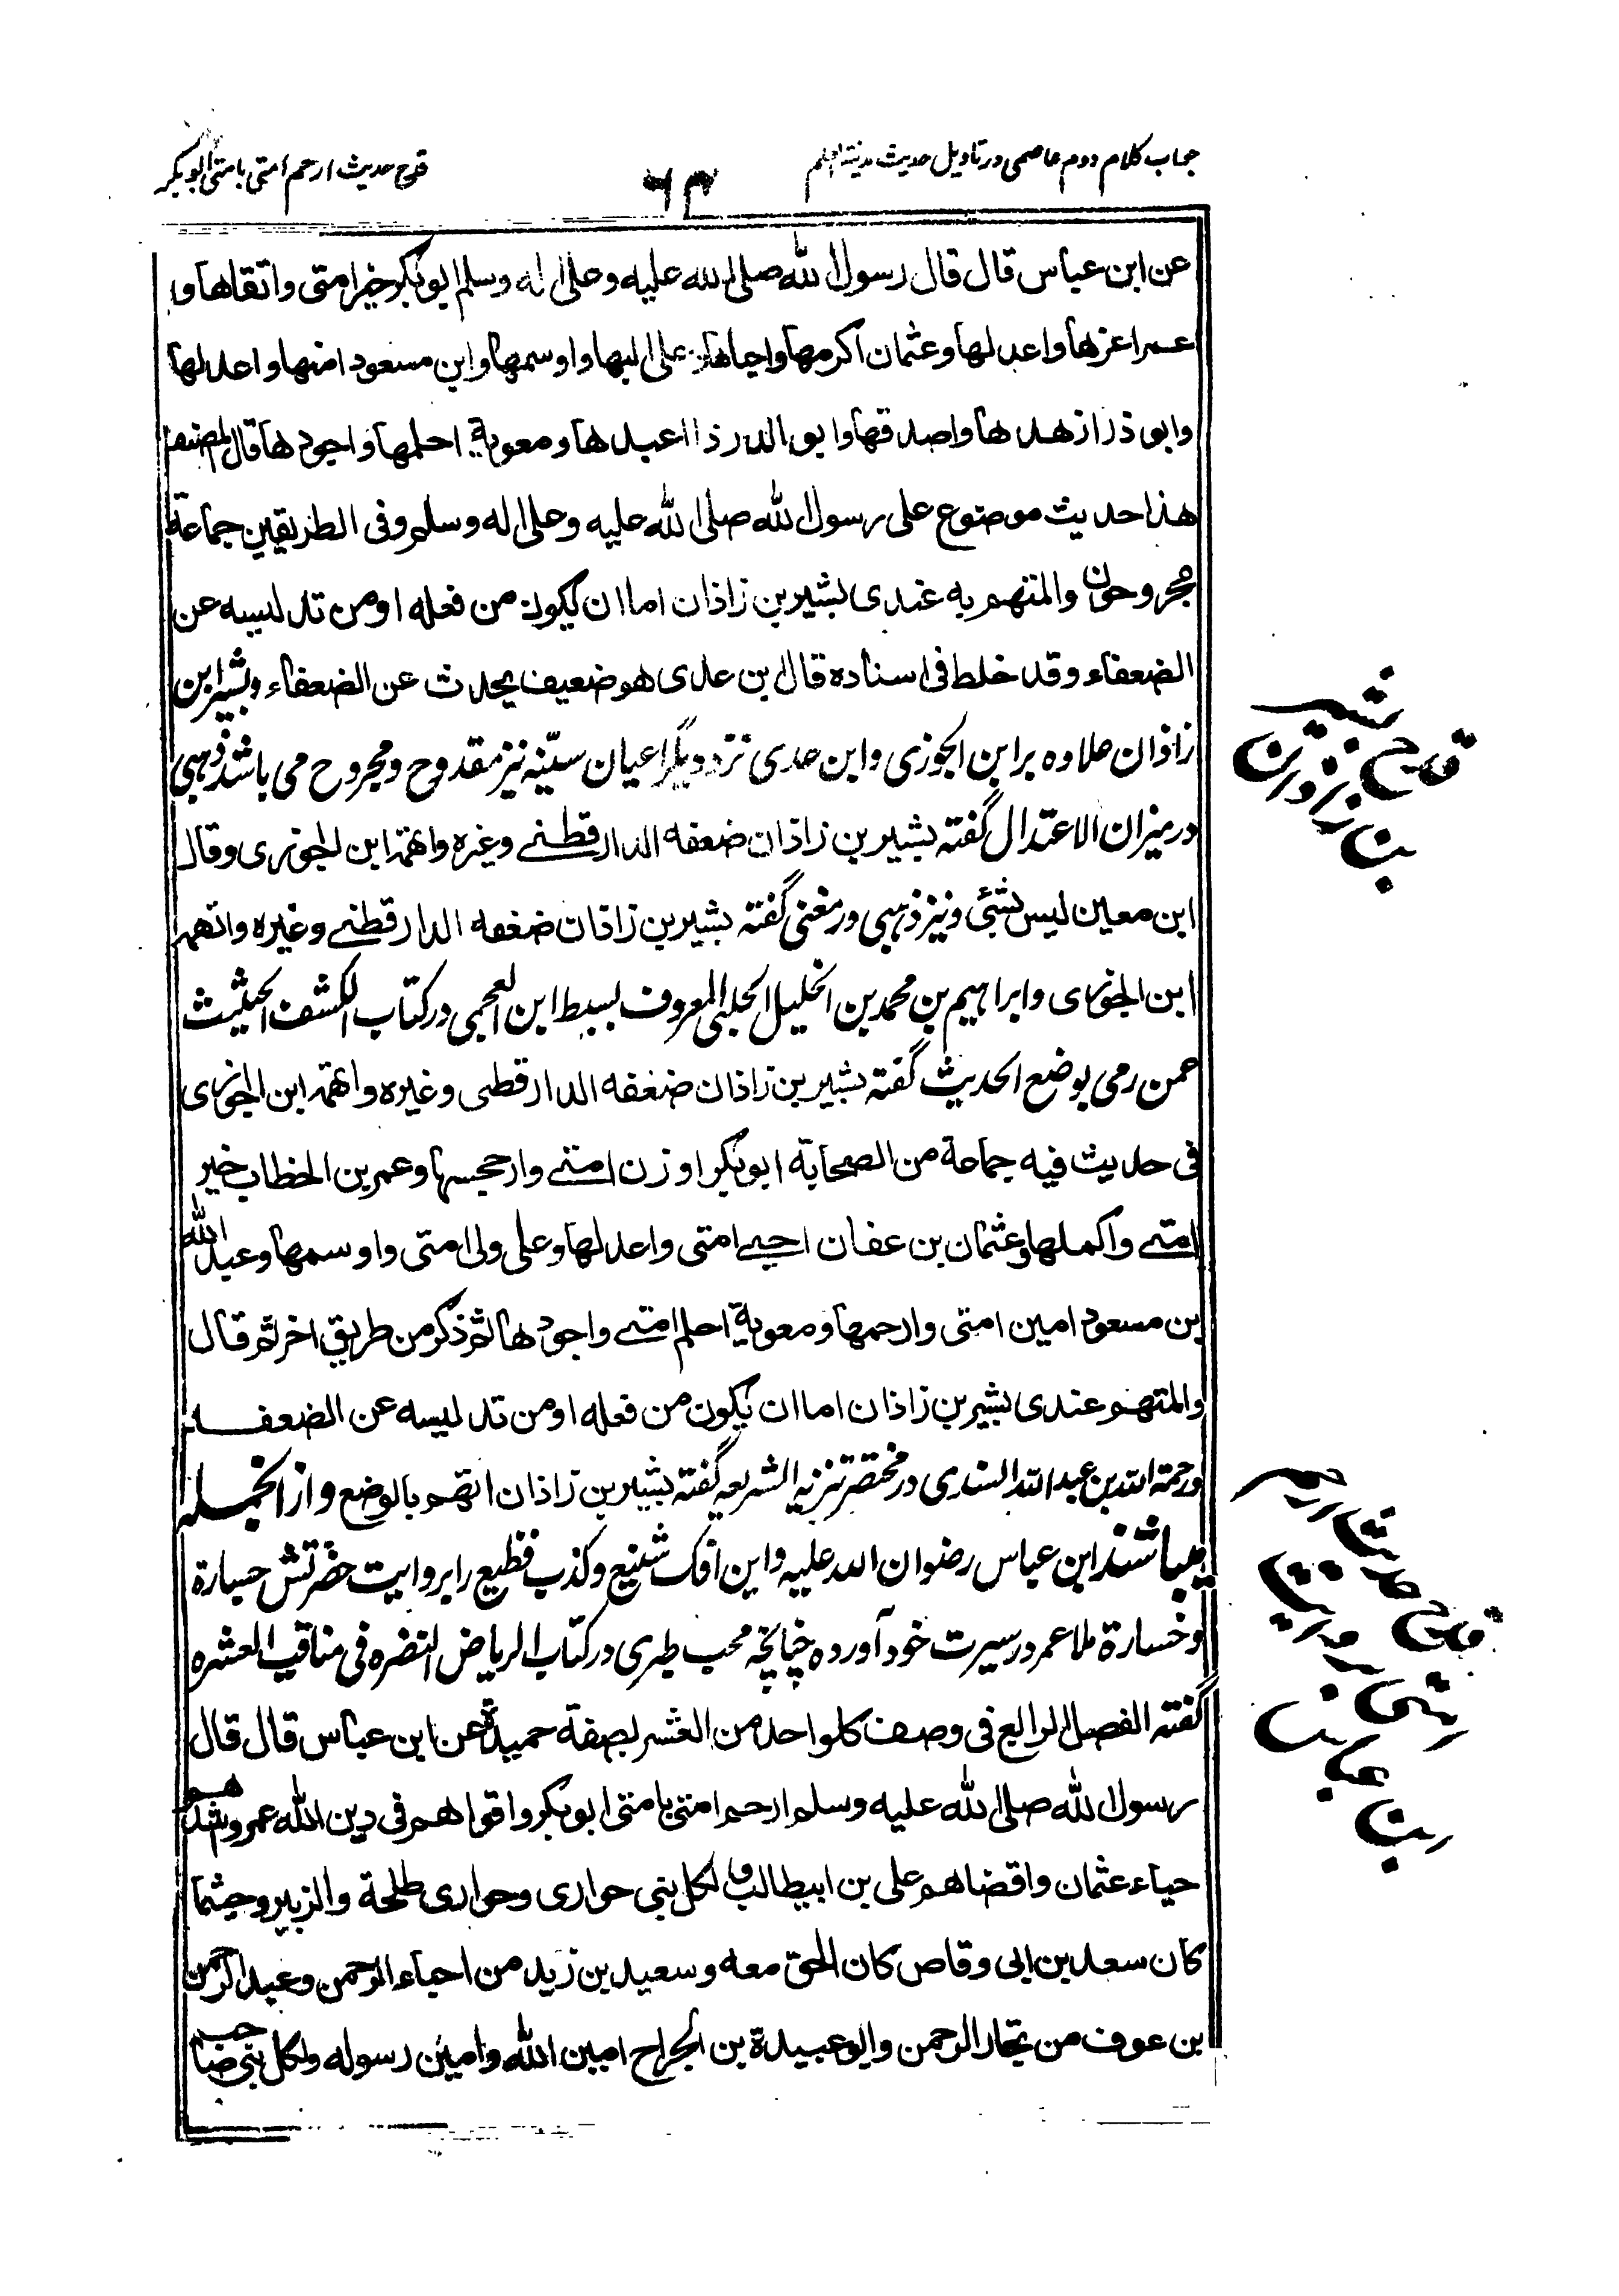 جواب کلام دوم عاصمی در تاویل حدیث مدینة العلم
۶۳
قدح حدیث ارحم امتی بامتی ابوبکر
عن ابن عباس قال قال رسول الله صلی الله علیه وعلی اله وسلم ابو بکر خیر امتی واتقاها و
عمر اعزها واعدلها وعثمان اکرمها واحیاها وعلی البها واوسمها وابن مسعود امنها واعدلها
وابو ذر ازهدها واصدقها وابو الدرذا اعبدها ومعویة احلمها واجودها قال المصنف
هذا حدیث موضوع علی رسول الله صلی الله علیه وعلی اله وسلم وفی الطریقین جماعة
مجروحون والمتهم به عندی بشیر بن زاذان اما ان یکون من فعله او من تدلیسه عن
الضعفاء وقد خلط فی اسناده قال ابن عدی هو ضعیف یحدث عن الضعفاء وبشیر ابن
زاذان علاوه بر ابن الجوزی وابن عدی نزد دیگر اعیان سنیّه نیز مقدوح و مجروح می باشد ذهبی
در میزان الاعتدال گفته بشیر بن زاذان ضعفه الدارقطنے وغیره واتهمه ابن الجوزی وقال
ابن معین لیس بشئی ونیز ذهبی در مغنی گفته بشیر بن زاذان ضعفه الدارقطنے وغیره واتهمه
ابن الجوزی وابراهیم بن محمد بن الخلیل الحلبی المعروف بسبط ابن العجمی در کتاب الکشف الحثیث
عمن رمی بوضع الحدیث گفته بشیر بن زاذان ضعفه الدارقطی وغیره واتهمه ابن الجوزی
فی حدیث فیه جماعة من الصحابة ابو بکر اوزن امتے وارجحها وعمر بن الخطاب خیر
امتے واکملها وعثمان بن عفان احیے امتی واعدلها وعلی ولی امتی واوسمها وعبد الله
بن مسعود امین امتی وارحمها ومعویة احلم امتے واجودها ثم ذکر من طریق اخر ثم قال
والمتهم عندی بشیر بن زاذان اما ان یکون من فعله او من تدلیسه عن الضعفاء
ورحمة الله بن عبد الله السندی در مختصر تنزیه الشریعه گفته بشیر بن زاذان اتهم بالوضع واز انجمله
میباشند ابن عباس رضوان الله علیه واین افک شنیع وکذب فظیع را بروایت حضرتش جسارة
وخسارة ملا عمر در سیرت خود آورده چنانچه محب طبری در کتاب الریاض النضره فی مناقب العشره
گفته الفصل الرابع فی وصف کل واحد من العشر بصفة حمیدة عن ابن عباس قال قال
رسول الله صلی الله علیه وسلم ارحم امتی بامتی ابو بکر واقواهم فی دین الله عمر واشدهم
حیاء عثمان واقضاهم علی بن ابیطالب ولکل نبی حواری وحواری طلحة والزبیر وحیثما
کان سعد بن ابی وقاص کان الحق معه وسعید بن زید من احباء الرحمن وعبد الرحمن
بن عوف من تجار الرحمن وابو عبیدة بن الجراح امین الله وامین رسوله ولکل نبی صاحب
قدح بشیر
بن زاذان
قدح حدیث ارحم
بروایت
ابن عباس